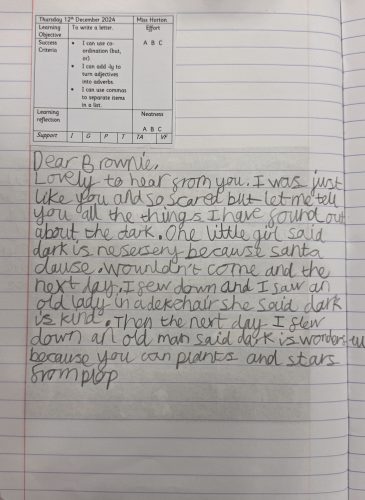 Thursday 12th December 2024 Miss Horton
Learning Objective To write a letter. Effort
Success Criteria • I can use co-ordination (but, or) A B C
• I can add -ly to turn adjectives into adverbs.
• I can use commas to separate items in a list.
Learning reflection Neatness
A B C
Support I G P T TA VF
Dear Brownie,
Lovely to hear from you. I was just
like you and so scared but let me tell
you all the things I have found out
about the dark. One little girl said
dark is nesersery because santa
clause. wouldn't come and the
next day. I flew down and I saw an
old lady in a dekchair she said dark
is kind. Then the next day I flew
down an old man said dark is
because you can plants and stars
from plop